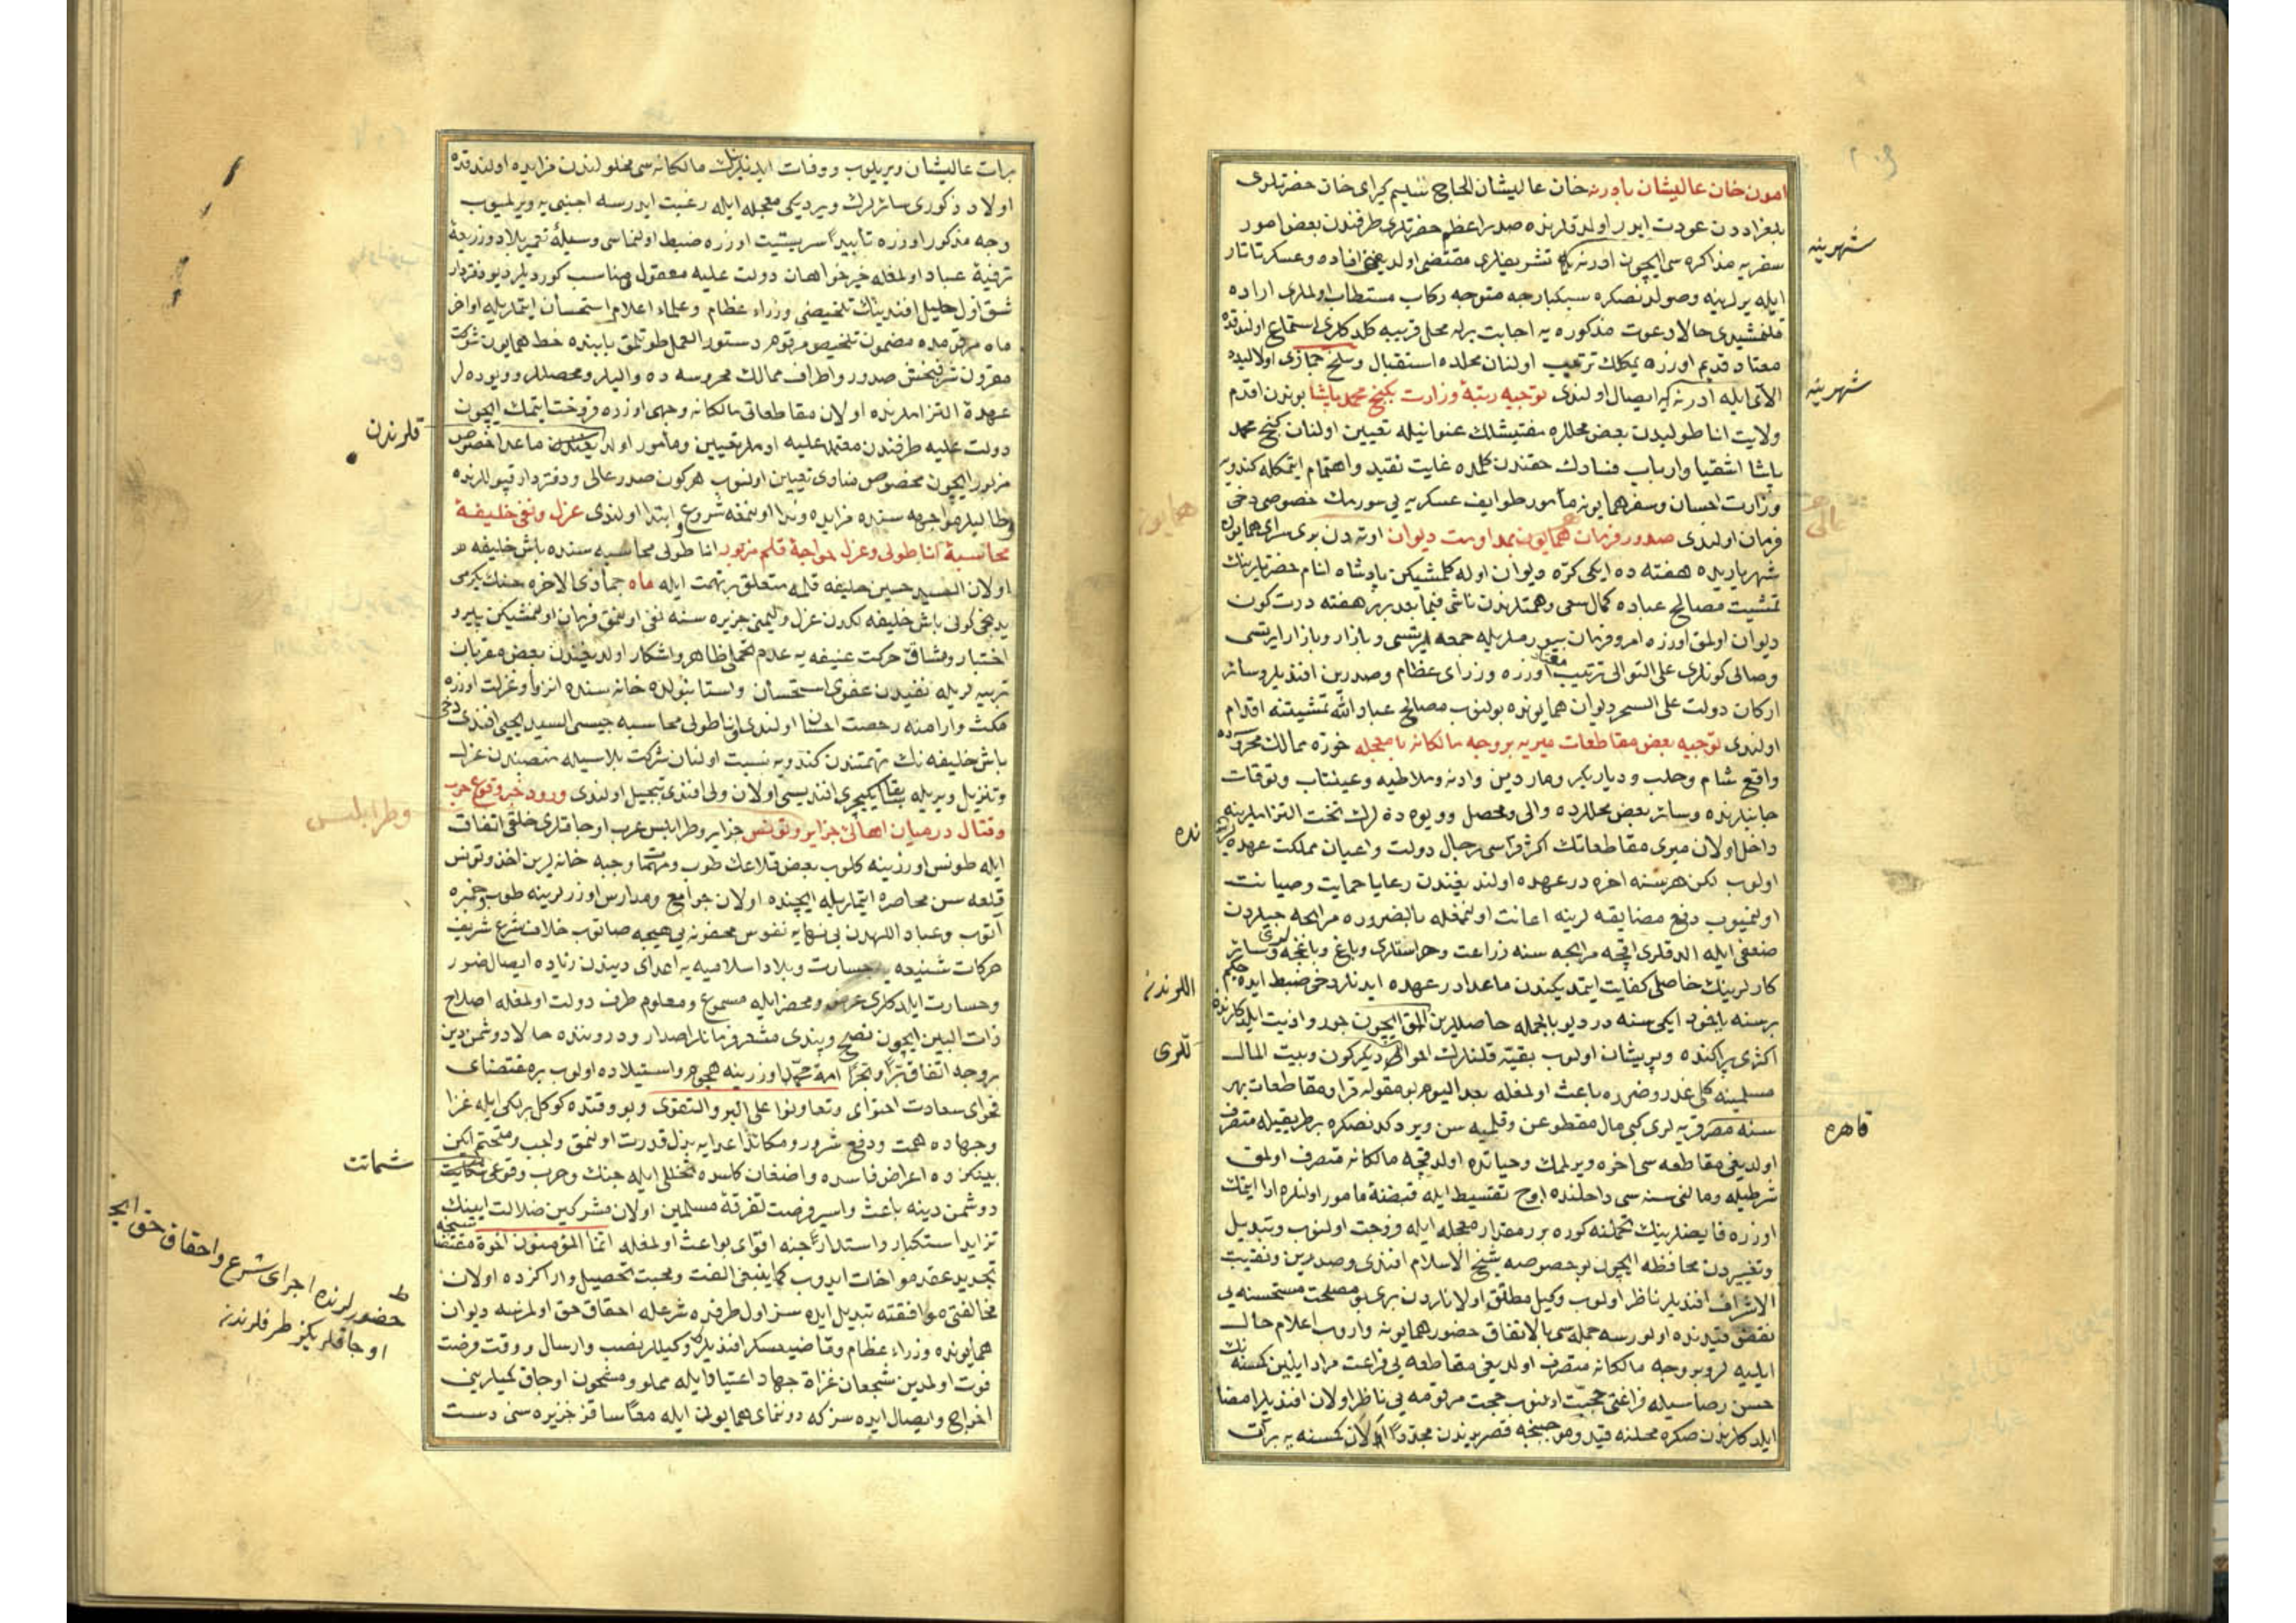 امون خان عاليشان بادرنه خان عاليشان الحاج سليم كيراى خان حضرتلرى
بلغراددن عودت ايدر اولدقلرنده صدراعظم حضرتلرى طرفندن بعض امور
سفريه مذاكره سى ايچون ادرنه يه تشريفلرى مقتضى اولديغنى افاده وعسكر تاتار
ايله يرلرينه وصولدنصكره سبكبارجه متوجه ركاب مستطاب اولملرى اراده
قلنمشيدى حالا دعوت مذكوره يه اجابت برله محل قريبه كلدكلرى استماع اولندقده
معتاد قديم اوزره يمكلك ترتيب اولنان محلده استقبال وسلخ جمازى اولاليده
الاى ايله ادرنه يه ايصال اولندى توجيه رتبۀ وزارت بكنج محمد پاشا بوندن اقدم
ولايت اناطوليدن بعض محللره مفتيشلك عنوانيله تعيين اولنان كنج محمد
پاشا اشقيا وارباب فسادك حقندن كلمده غايت تقيد واهتمام ايتمكله كندويه
وزارت احسان وسفر همايونه مأمور طوايف عسكريه يى سورمك خصوصى دخى
فرمان اولندى صدور فرمان همايون بمداومت ديوان اوته دن برى سراى همايون
شهرياريده هفته ده ايكى كره ديوان اوله كلمشيكن پادشاه انام حضرتلرينك
تمشيت مصالح عباده كمال سعى وهمتلرندن ناشى فيما بعد بهر هفته درت كون
ديوان اولمق اوزره امر وفرمان بيورملريله جمعه ايرتسى وبازار وبازار ايرتسى
وصالى كونلرى على التوالى ترتيب معتاد اوزره وزراى عظام وصدرين افنديلر وسائر
اركان دولت على السحر ديوان همايونده بولنوب مصالح عباد الله تمشيتنه اقدام
اولندى توجيه بعض مقاطعات ميريه بروجه مالكانه با معجله حوزه ممالك محروسه ده
واقع شام وحلب وديار بكر وماردين وادنه وملاطيه وعينتاب وتوقات
جانبلرنده وسائر بعض محللرده والى ومحصل وويوه ده لرك تحت التزاملرينه
داخل اولان ميرى مقاطعاتك اكثر قراسى رجال دولت واعيان مملكت عهده لرنده
اولوب لكن هر سنه اخره در عهده اولنديغندن رعايا حمايت وصيانت
اولنميوب دفع مضايقه لرينه اعانت اولنمغله بالضروره مرابحه جيلردن
ضعفى ايله الدقلرى اقچه مرابحه سنه زراعت وحراستلرى وباغ وباغچه وسائر
كارلرينك حاصلى كفايت ايتمديكندن ماعدا در عهده ايدنلر دخى ضبط ايده جكم
برسنه ياخود ايكى سنه در ديو بالجمله حاصللرين المق ايچون جور واذيت ايلدكلرنده
اكثرى پراكنده وپريشان اولوب بقيه قلنلرك احوالى ديكركون وبيت المال
مسلمينه كلى غدر وضرره باعث اولمغله بعد اليوم بو مقوله قرا ومقاطعات بهر
سنه مصر قريه لرى كبى مال مقطوعن وقلميه سن ويردكدنصكره بر طريقيله متصرف
اولديغى مقاطعه سى اخره ويرلمك وحياتده اولدقچه مالكانه متصرف اولمق
شرطيله ومالنى سنه سى داخلنده اوج تقسيط ايله قبضنه مامور اولنلره ادا ايتمك
اوزره فايضلرينك تحملنه كوره بر مقدار معجله ايله فروخت اولنوب وتبديل
وتغييردن محافظه ايچون بو خصوصه شيخ الاسلام افندى وصدرين ونقيب
الاشراف افنديلر ناظر اولوب وكيل مطلق اولانلردن برى بو مصلحت مستحسنه يى
نقض قيدنده اولورسه جمله سى بالاتفاق حضور همايونه واروب اعلام حال
ايليه لر وبو وجه مالكانه متصرف اولديغى مقاطعه يى فراغت مراد ايليين كمسنه نك
حسن رضاسيله فراغتى حجيت اولنوب حجت مرقومه يى ناظر اولان افنديلر امضا
ايلدكلرندن صكره محلنه قيد وموجبنجه قصر يدندن مجددا الان كمسنه يه برات
شهرينه
شهرينه
عالى
قاهره
همايون
نده
اللرندن
تلرى
برات عاليشان ويريلوب ووفات ايدنلرك مالكانه سى محلولندن مزايده اولندقده
اولاد ذكورى سائرلرك ويرديكى معجله ايله رغبت ايدرسه اجنبى يه ويرلميوب
وجه مذكور اوزره تأبيدا سربستيت اوزره ضبط اولنماسى وسيلۀ تعمير بلاد وذريعۀ
ترفيۀ عباد اولمغله خيرخواهان دولت عليه معقول ومناسب كورديلر ديو دفتردار
شق اول خليل افندينك تلخيصنى وزراء عظام وعلماء اعلام استحسان ايتمليله اواخر
ماه مرقومده مضمون تلخيص مرقوم دستور العمل طوتلمق بابنده خط همايون شوكت
مقرون شرفبخش صدور واطراف ممالك محروسه ده واليلر ومحصللر وويوده لر
عهدۀ التزاملرنده اولان مقاطعاتى مالكانه وجهى اوزره فروخت ايتمك ايچون
دولت عليه طرفندن معتمد عليه ادملر تعيين ومأمور اولديغندن ماعدا خصوص
مزبور ايچون مخصوص منادى تعيين اولنوب هركون صدر عالى ودفتردار قپولرنده
وطاليلر مواجهه سنده مزايده وندا اولنمغه شروع وابتدا اولندى عزل ونفى خليفۀ
محاسبۀ اناطولى وعزل خواجۀ قلم مزبور اناطولى محاسبه سنده باش خليفه
اولان السيد حسين خليفه قلمه متعلق بر تهمت ايله ماه جماذى الاخره جنك يكرمى
يدنجى كونى باش خليفه لكدن عزل وليمنى جزيره سنه نفى اولنمق فرمان اولنمشيكن پيرو
اختيار ومشاق حركت عنيفه يه عدم تحملى ظاهر واشكار اولديغندن بعض مقربان
تربيه لريله نفيدن عفوى استحسان واستانبولده خانه سنده انزوا وعزلت اوزره
مكث وارامنه رخصت احسان اولندى اناطولى محاسبه جيسى السيد يحيى افندى دخى
باش خليفه نك تهمتندن كندويه نسبت اولنان شركت بلاسيله منصبندن عزل
وتنزيل ويريله سابقا يكيچرى افنديسى اولان ولى افندى تبجيل اولندى ورود خبر وقوع حرب
وقتال درميان اهالئ جزاير وتونس جزاير وطرابلس عرب اوجاقلرى خلقى اتفاق
ايله طونس اوزرينه كلوب بعض قلاعك طوب ومهمات وجبه خانه لرين اخذ وتونس
قلعه سن محاصره ايتمليله ايچنده اولان جوامع ومدارس اوزرلرينه طوب وخمبره
آتوب وعباد اللهدن بى نهايه نفوس محفونه يى هيچه صاتوب خلاف شرع شريف
حركات شنيعه يه جسارت وبلاد اسلاميه يه اعداى ديندن زياده ايصال ضرر
وخسارت ايلدكلرى عرض ومحضر ايله مسموع ومعلوم طرف دولت اولمغله اصلاح
ذات البين ايچون نصح وپندى مشعر فرمانلر اصدار ودروننده حالا دوشمن دين
بروجه اتفاق تبرا وبحرا امة محمد اوزرينه هجوم واستيلاده اولوب بره مقتضاى
فحواى سعادت احتواى وتعاونوا على البر والتقوى وبو وقتده كوكل برلكى ايله غزا
وجهاده همت ودفع شرور ومكائد اعدايه بذل قدرت اولنمق واجب ومتحتم ايكن
بينكزده اعراض فاسده واضغان كاسده تخللى ايله جنك وحرب وقوعى شماتت
دوشمن دينه باعث واسير فرصت تفرقۀ مسلمين اولان مشركين ضلالت ايينك
تزايد استكبار واستدراجنه اقواى بواعث اولمغله انما المؤمنون اخوة مقتضاسنجه
تجديد عقد مواخات ايدوب كما ينبغى الفت ومحبت تحصيل واراكزده اولان
مخالفتى موافقته تبديل ايده سز اول طرفده شرعله احقاق حق اولمزسه ديوان
همايونده وزراء عظام وقاضيعسكر افنديلر وكيللر نصب وارسال ووقت فرصت
فوت اولمدين شجعان غزاة جهاد اعتيادايله مملو ومشحون اوجاق كميلرينى
اخراج وايصال ايده سز كه دوننماى همايون ايله معا ساقز جزيره سنى دست
قلرندن
وطرابلس
شماتت
حضورلرنده اجراى شرع واحقاق حق ايچون
اوجاقلريكز طرفلرندن